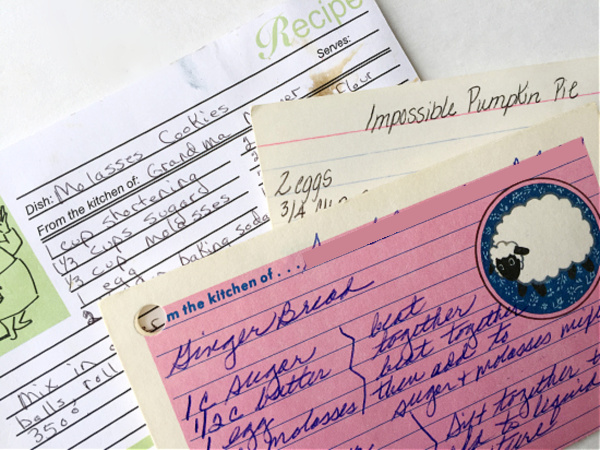 Recipe
Serves:
Dish: Molasses Cookies
From the kitchen of: Grandma
1 cup shortening
1/3 cups sugar
1/3 cup molasses
1 egg
baking soda
flour
mix in
balls, roll
350°
Impossible Pumpkin Pie
2 eggs
3/4
m the kitchen of . . .
Ginger Bread
1 c sugar
1/2 c butter
1 egg
molasses
beat
together
beat together
then add to
sugar + molasses
Sift together
to liquid